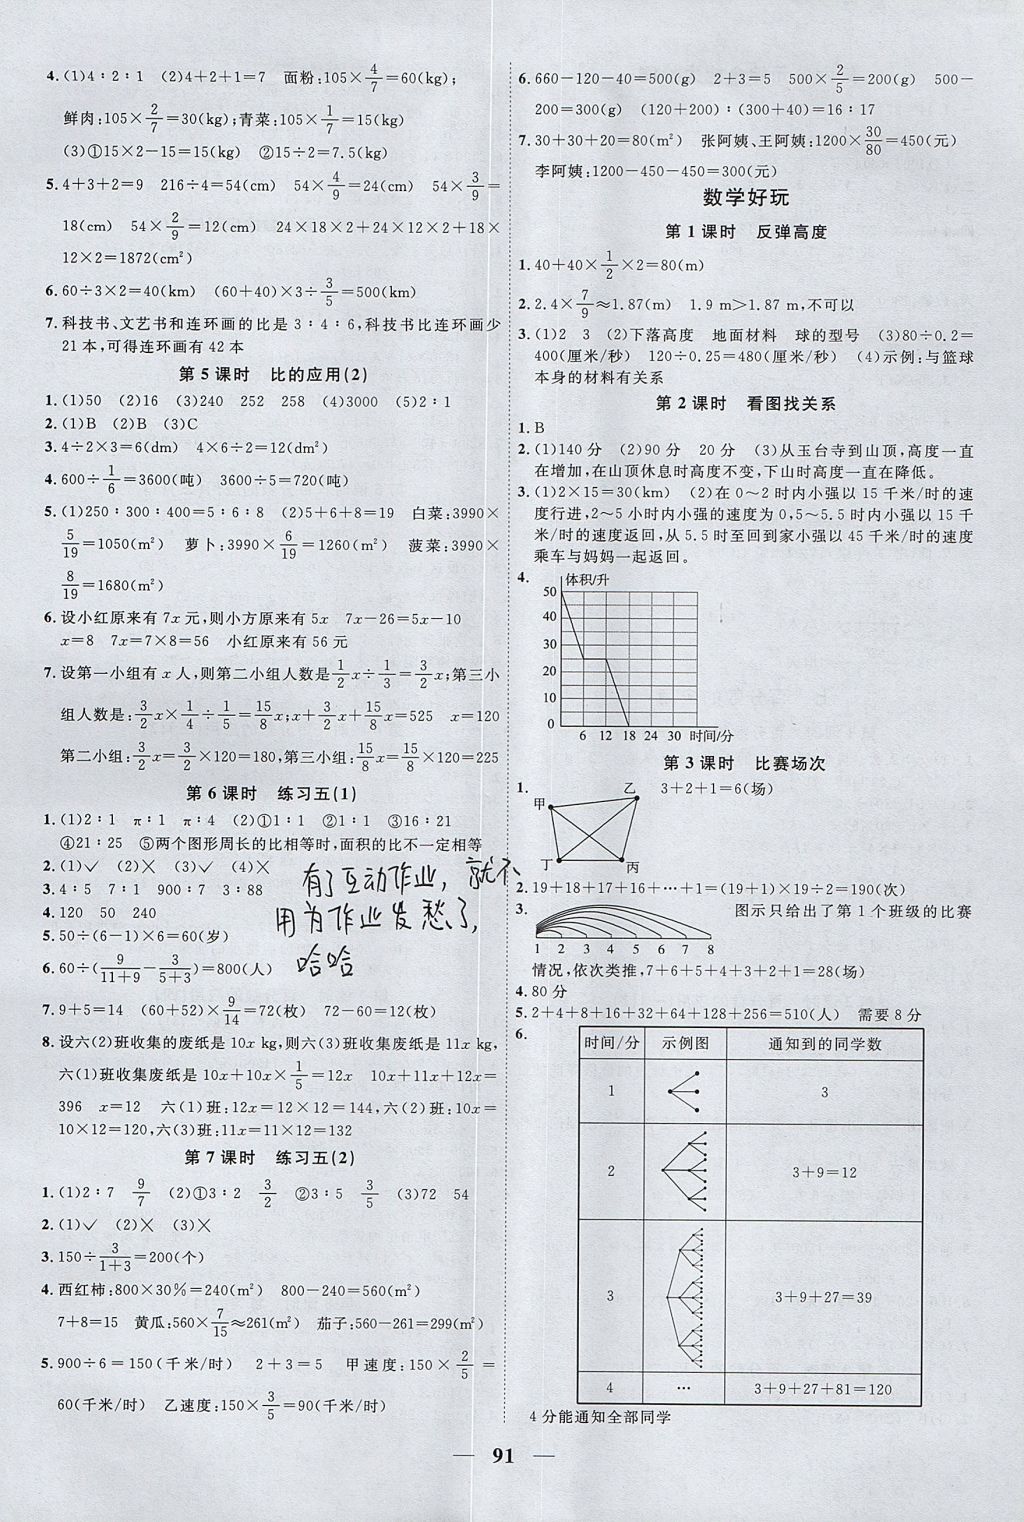 4.(1)4∶2∶1 (2)4+2+1=7 面粉:105×4/7=60(kg);
鲜肉:105×2/7=30(kg);青菜:105×1/7=15(kg)
(3)①15×2-15=15(kg) ②15÷2=7.5(kg)
5.4+3+2=9 216÷4=54(cm) 54×4/9=24(cm) 54×3/9=
18(cm) 54×2/9=12(cm) 24×18×2+24×12×2+18×
12×2=1872(cm²)
6.60÷3×2=40(km) (60+40)×3÷3/5=500(km)
7.科技书、文艺书和连环画的比是3∶4∶6,科技书比连环画少
21本,可得连环画有42本
第5课时 比的应用(2)
1.(1)50 (2)16 (3)240 252 258 (4)3000 (5)2∶1
2.(1)B (2)B (3)C
3.4÷2×3=6(dm) 4×6÷2=12(dm²)
4.600÷1/6=3600(吨) 3600÷5=720(吨)
5.(1)250∶300∶400=5∶6∶8 (2)5+6+8=19 白菜:3990×
5/19=1050(m²) 萝卜:3990×6/19=1260(m²) 菠菜:3990×
8/19=1680(m²)
6.设小红原来有7x元,则小方原来有5x 7x-26=5x-10
x=8 7x=7×8=56 小红原来有56元
7.设第一小组有x人,则第二小组人数是1/2x÷1/3=3/2x;第三小
组人数是:3/2x×1/4÷1/5=15/8x;x+3/2x+15/8x=525 x=120
第二小组:3/2x=3/2×120=180,第三小组:15/8x=15/8×120=225
第6课时 练习五(1)
1.(1)2∶1 π∶1 π∶4 (2)①1∶1 ②1∶1 ③16∶21
④21∶25 ⑤两个图形周长的比相等时,面积的比不一定相等
2.(1)✓ (2)✕ (3)✓ (4)✕
3.4∶5 7∶1 900∶7 3∶88
4.120 50 240
5.50÷(6-1)×6=60(岁)
6.60÷(9/11+9-3/5+3)=800(人)
有了互动作业，就不
用为作业发愁了，
哈哈
7.9+5=14 (60+52)×9/14=72(枚) 72-60=12(枚)
8.设六(2)班收集的废纸是10x kg,则六(3)班收集废纸是11x kg,
六(1)班收集废纸是10x+10x×1/5=12x 10x+11x+12x=
396 x=12 六(1)班:12x=12×12=144,六(2)班:10x=
10×12=120,六(3)班:11x=11×12=132
第7课时 练习五(2)
1.(1)2∶7 9/7 (2)①3∶2 3/2 ②3∶5 3/5 (3)72 54
2.(1)✓ (2)✕ (3)✕
3.150÷3/1+3=200(个)
4.西红柿:800×30%=240(m²) 800-240=560(m²)
7+8=15 黄瓜:560×7/15≈261(m²) 茄子:560-261=299(m²)
5.900÷6=150(千米/时) 2+3=5 甲速度:150×2/5=
60(千米/时) 乙速度:150×3/5=90(千米/时)
6.660-120-40=500(g) 2+3=5 500×2/5=200(g) 500-
200=300(g) (120+200)∶(300+40)=16∶17
7.30+30+20=80(m²) 张阿姨、王阿姨:1200×30/80=450(元)
李阿姨:1200-450-450=300(元)
数学好玩
第1课时 反弹高度
1.40+40×1/2×2=80(m)
2.2.4×7/9≈1.87(m) 1.9 m>1.87 m,不可以
3.(1)2 3 (2)下落高度 地面材料 球的型号 (3)80÷0.2=
400(厘米/秒) 120÷0.25=480(厘米/秒) (4)示例:与篮球
本身的材料有关系
第2课时 看图找关系
1.B
2.(1)140分 (2)90分 20分 (3)从玉台寺到山顶,高度一直
在增加,在山顶休息时高度不变,下山时高度一直在降低。
3.(1)2×15=30(km) (2)在0~2时内小强以15千米/时的速
度行进,2~5小时内小强的速度为0,5~5.5时内小强以15千
米/时的速度返回,从5.5时至回到家小强以45千米/时的速度
乘车与妈妈一起返回。
4.
体积/升
50
40
30
20
10
0
6 12 18 24 30 时间/分
第3课时 比赛场次
1. 甲 乙 3+2+1=6(场)
丁 丙
2.19+18+17+16+…+1=(19+1)×19÷2=190(次)
3. 图示只给出了第1个班级的比赛
1 2 3 4 5 6 7 8
情况,依次类推,7+6+5+4+3+2+1=28(场)
4.80分
5.2+4+8+16+32+64+128+256=510(人) 需要8分
6.
时间/分 示例图 通知到的同学数
1 3
2 3+9=12
3 3+9+27=39
4 … 3+9+27+81=120
4分能通知全部同学
91